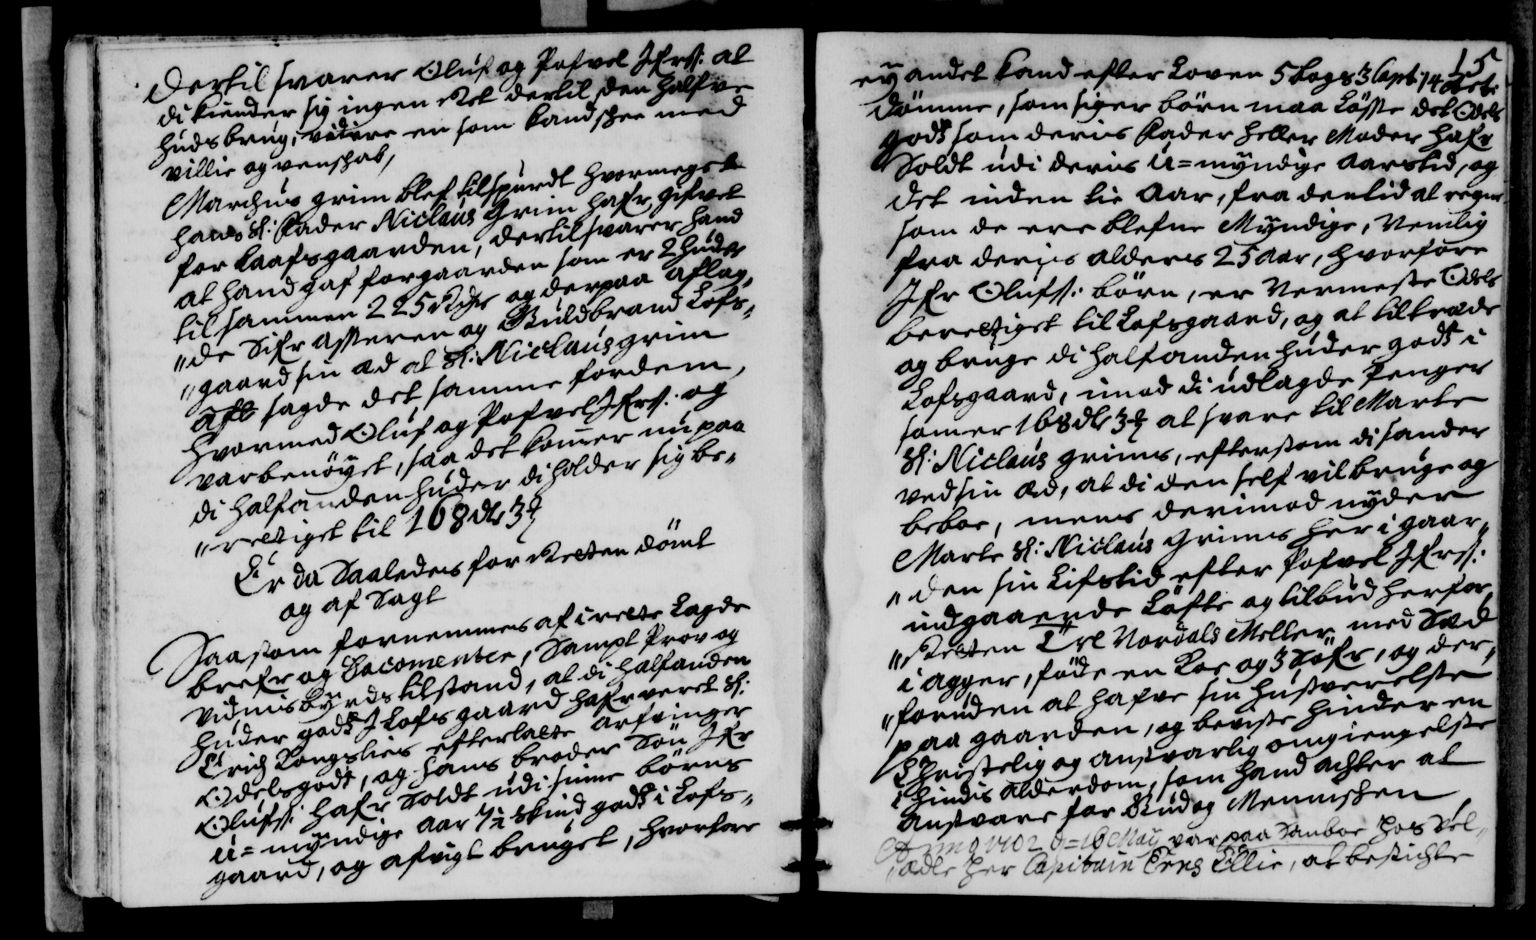 Dertil svarer Oluf og Pofvel Ifrss: at
di kiender sig ingen Ret dertil, den halfve
huds brug, videre en som kand schee med
villie og venschab,
Marchus grim blef tilspurdt hvormeget
hans Sl: Fader Niclaus Grim hafr gifvet
for Laafsgaarden, dertil svarer hand
at hand gaf for gaarden som er 2 huder
til sammen 225 Rdr og derpaa aflag„
„de Sifr Assteren og Guldbrand Lofs„
„gaard sin æd at Sl: Niclaus grim
Aft sagde det samme for dem,
hvormed Oluf og Pofvel Ifrs: og
var benøyet, saa det komer nu paa
di halfanden huder di holder sig be„
„rettiget til 168 dlr 3 ℔
Er da Saaledes for Retten dömt
og af Sagt
Saasom fornemmes af i rette Lagde
brefr og Docomenter, Sampt Prov og
vidnisbyrds tilstand, at di halfanden
huder godts I Lofsgaard hafr veret Sl:
Erich Longslies efterlatte arfvinger
Odelsgodts, og hans broder Sön Ifr
Olufss: hafr Soldt udi sinne börns
u=myndige Aar 1/2 skind godts i Lofs„
gaard, og afvigt bruget, hvorfore
15
ey andet kand efter Loven 5 bogs 3 Capt 14 Art:
dömme, som siger börn maa Løsse det Odels
godts som deris Fader heller Moder hafr
Soldt udi deris u=myndige Aars tid, og
det inden tie Aar, fra den tid at regne
som de ere blefne Myndige, Nemlig
fra deris alders 25 Aar, hvorfore
Ifr Olufss: börn, er Nermeste Odels
berettiget til Lofsgaard, og at tiltrede
og bruge di halfanden huder godts i
Lofsgaard, imod di udlagde Penger
som er 168 dlr 3 ℔ at svare til Marte
Sl: Niclaus grims, eftersom di sander
ved sin æd, at di den self vil bruge og
beboe, mens derimod nyder
Marte Sl: Niclaus Grims her i gaar„
„den sin Lifstid efter Pofvel Ifrss:
indgaaende Löfte og tilbud her for
„Retten Et Nordals Meller med Sæd
i agger, föde en Koe og 3 Söfr, og der„
„foruden at hafve sin huusverelsse
paa gaarden, og bevisse hinder en
Christelig og ansvarlig omgiengelsse
i hindis Alderdom, som hand achter at
ansvare for Gud og Mennischen
Anno 1702 d= 16 Maij var paa Sanboe hos Vel„
„ædle her Capitain Ellie, at besichte